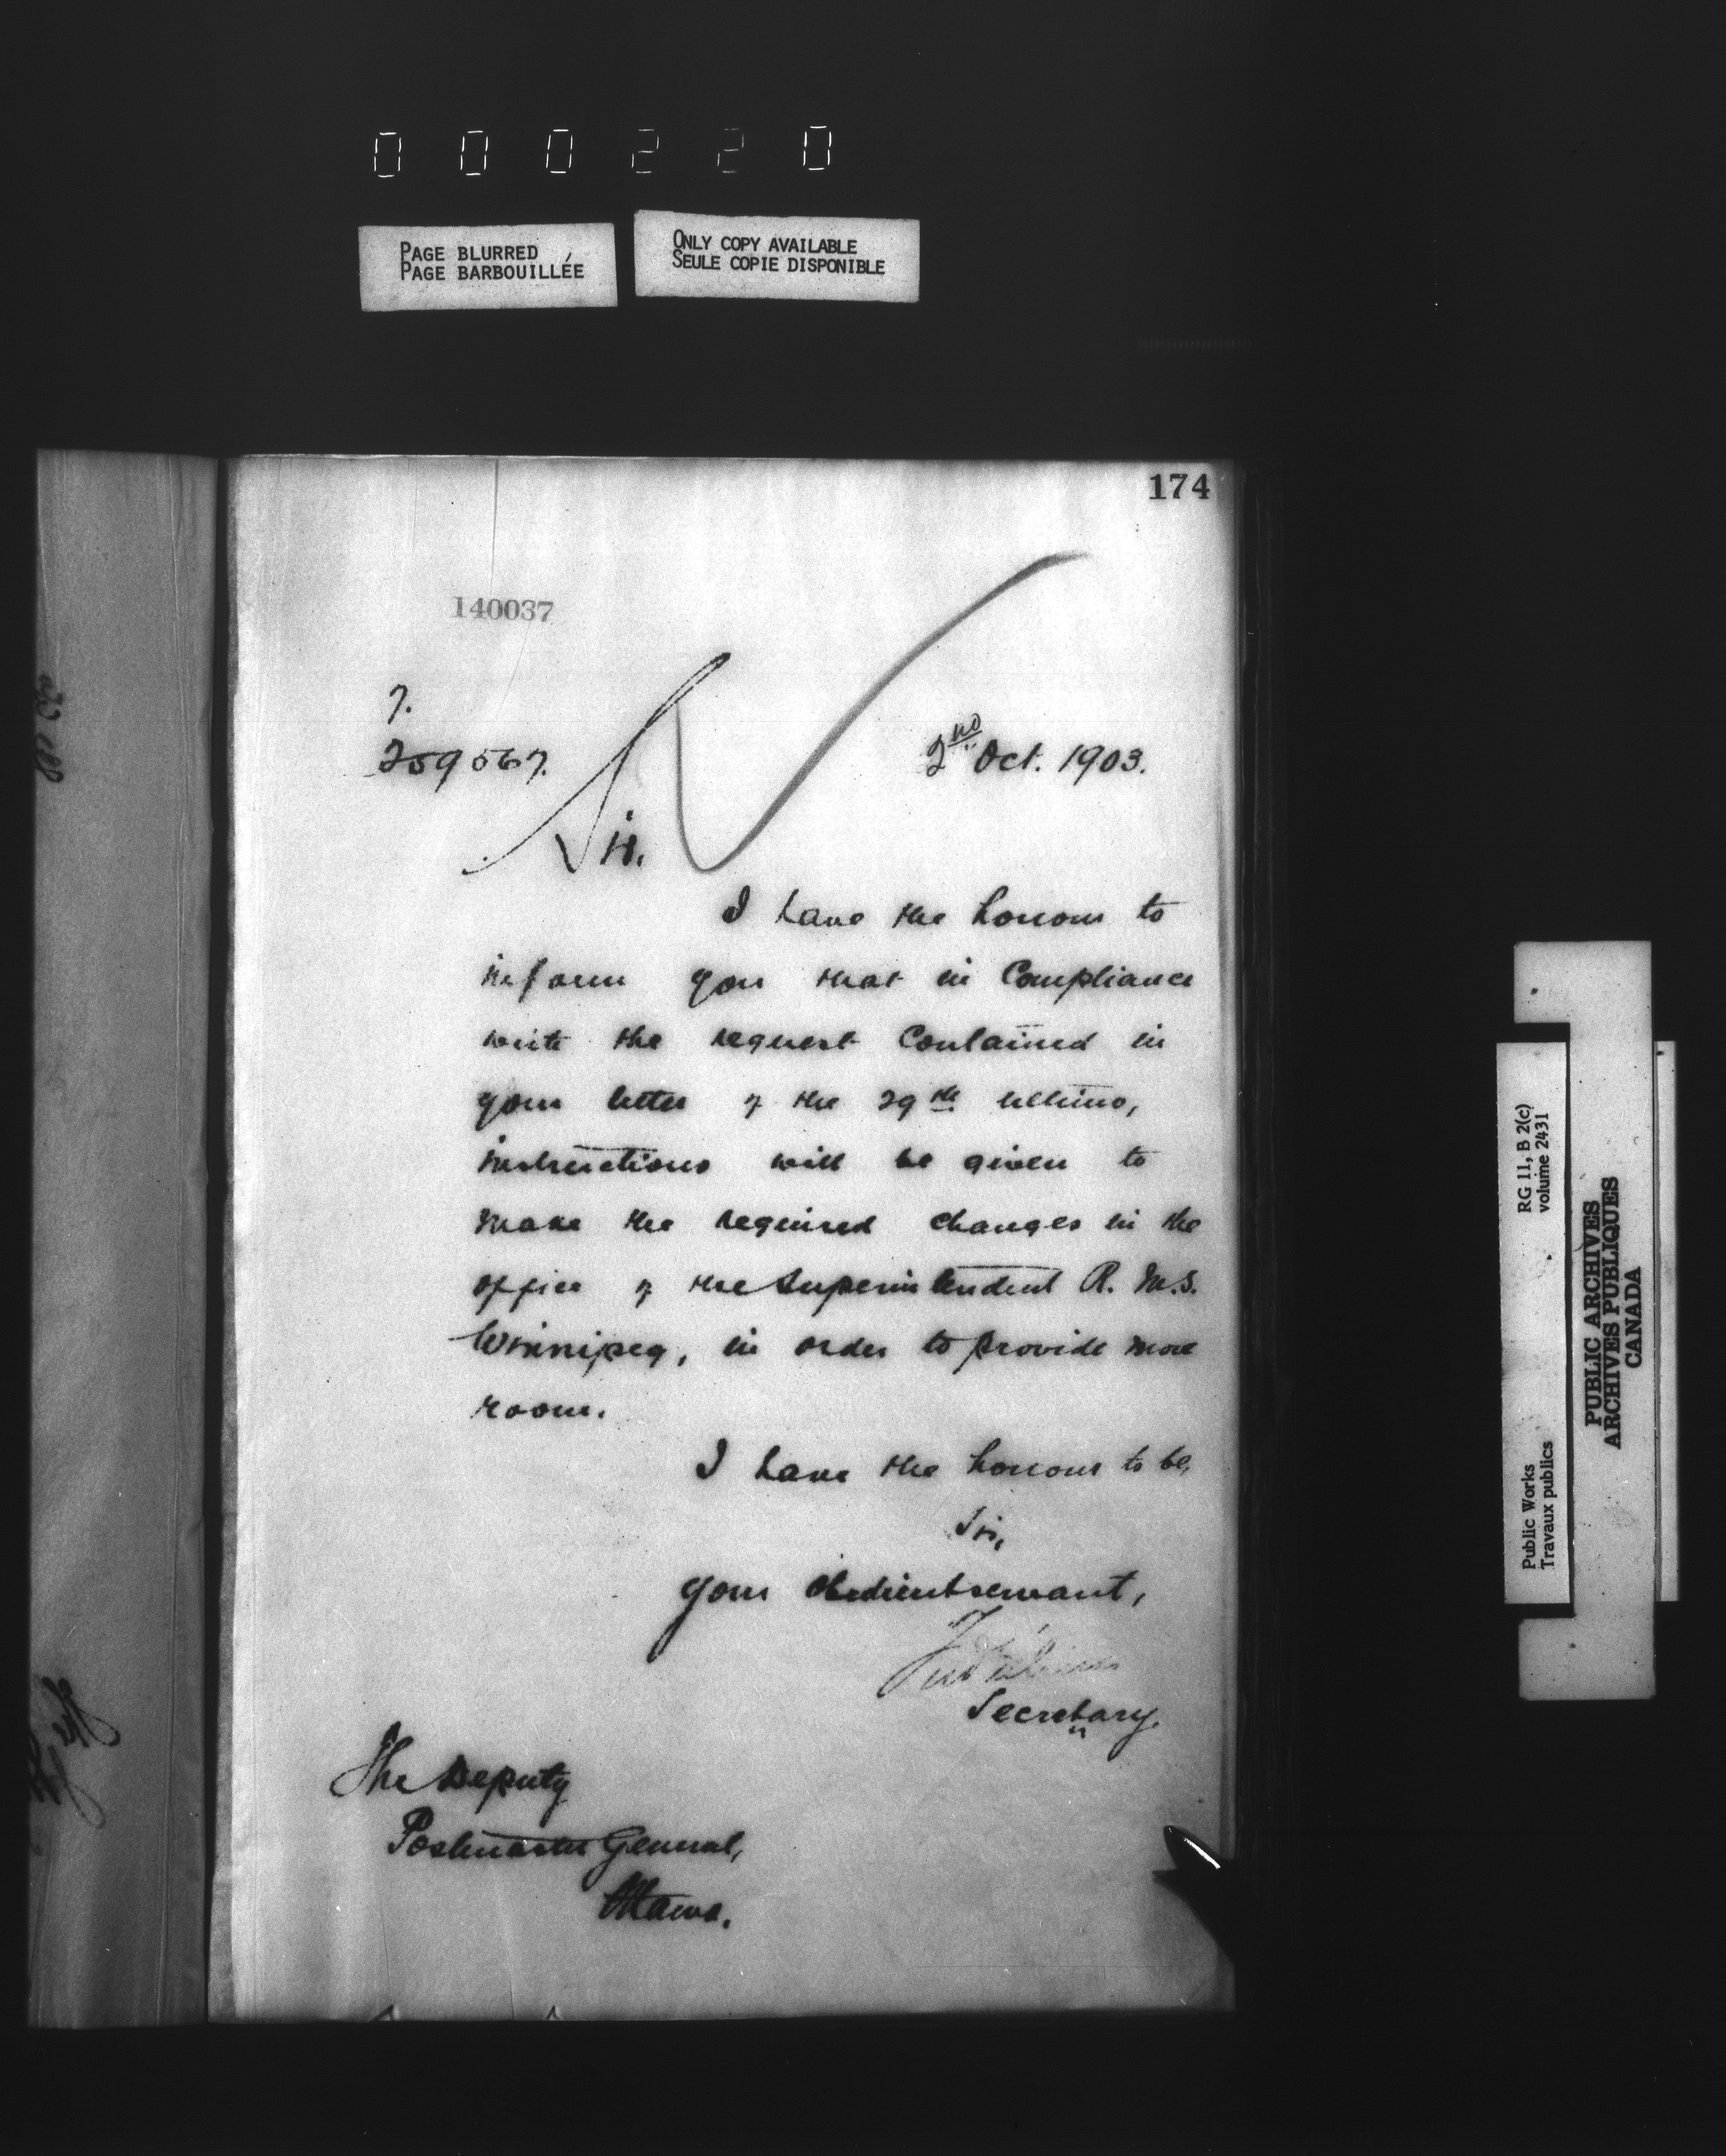 000220
PAGE BLURRED
PAGE BARBOUILLÉE
ONLY COPY AVAILABLE
SEULE COPIE DISPONIBLE
174
140037
7.
259567.
2nd Oct. 1903.
Sir,
I have the honour to
inform you that in Compliance
with the request Contained in
your letter of the 29th ultimo,
instructions will be given to
make the required changes in the
office of the Superintendent R. M. S.
Winnipeg, in order to provide more
room.
I have the honour to be,
Sir,
Your Obedient servant,
Secretary.
The Deputy
Postmaster General,
Ottawa.
RG 11, B 2(c)
volume 2431
Public Works
Travaux publics
PUBLIC ARCHIVES
ARCHIVES PUBLIQUES
CANADA